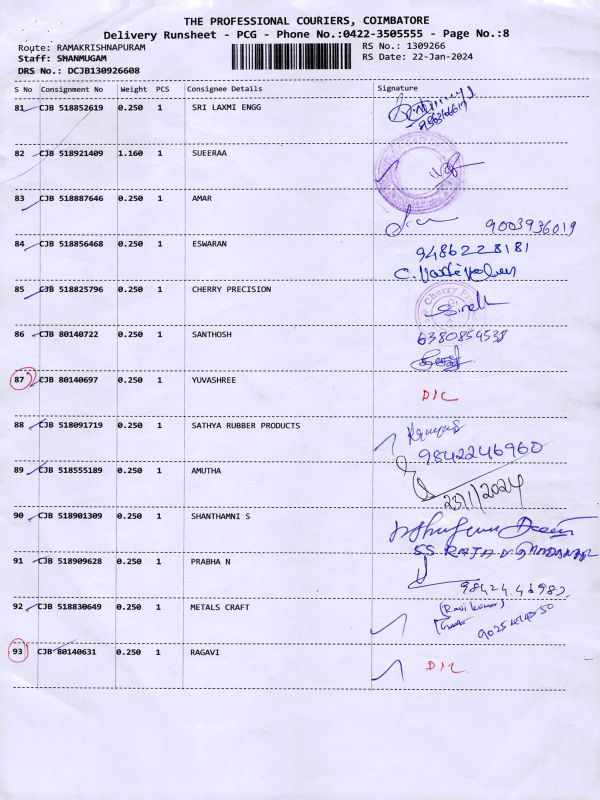 THE PROFESSIONAL COURIERS, COIMBATORE
Delivery Runsheet - PCG - Phone No.:0422-3505555 - Page No.:8
Route: RAMAKRISHNAPURAM
RS No.: 1309266
Staff: SHANMUGAM
RS Date: 22-Jan-2024
DRS No.: DCJB130926608
S No Consignment No Weight PCS Consignee Details Signature
81 CJB 518852619 0.250 1 SRI LAXMI ENGG
82 CJB 518921409 1.160 1 SUEERAA
83 CJB 518887646 0.250 1 AMAR
9003936019
84 CJB 518856468 0.250 1 ESWARAN 9486228181
85 CJB 518825796 0.250 1 CHERRY PRECISION
Cherry
86 CJB 80140722 0.250 1 SANTHOSH 6380859538
87 CJB 80140697 0.250 1 YUVASHREE
D/L
88 CJB 518091719 0.250 1 SATHYA RUBBER PRODUCTS
9842246960
89 CJB 518555189 0.250 1 AMUTHA
23/1/2024
90 CJB 518901309 0.250 1 SHANTHAMNI S
91 CJB 518909628 0.250 1 PRABHA N
92 CJB 518830649 0.250 1 METALS CRAFT (Ravikumar)
93 CJB 80140631 0.250 1 RAGAVI
D/L